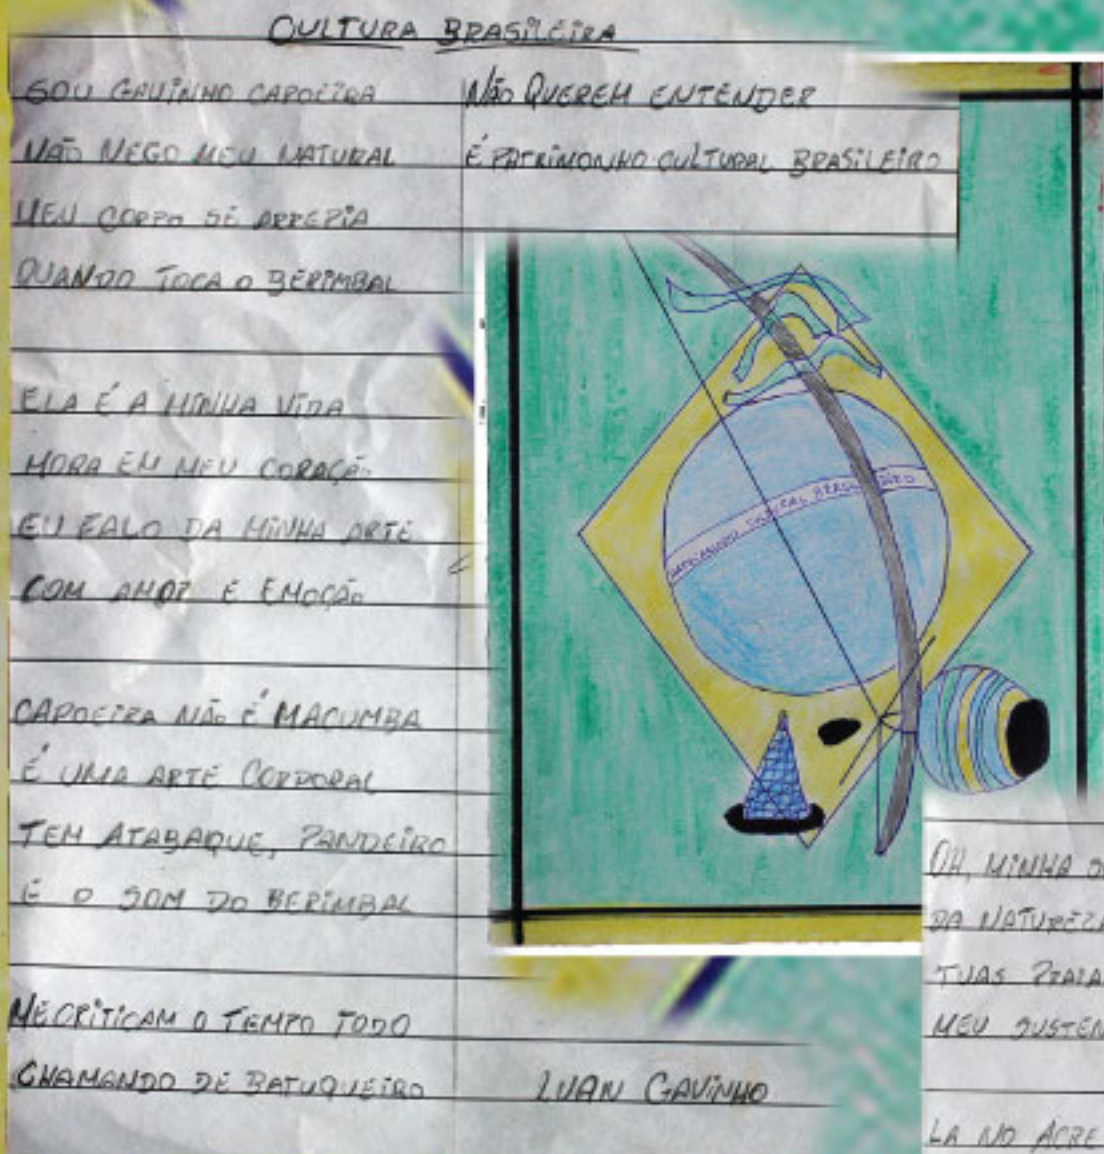 CULTURA BRASILEIRA
SOU GAVINHO CAPOEIRA
NÃO NEGO MEU NATURAL
MEU CORPO SE ARREPIA
QUANDO TOCA O BERIMBAL
ELA É A MINHA VIDA
MORA EM MEU CORAÇÃO
EU FALO DA MINHA ARTE
COM AMOR E EMOÇÃO
CAPOEIRA NÃO É MACUMBA
É UMA ARTE CORPORAL
TEM ATABAQUE, PANDEIRO
E O SOM DO BERIMBAL
ME CRITICAM O TEMPO TODO
CHAMANDO DE BATUQUEIRO
NÃO QUEREM ENTENDER
É PATRIMONHO CULTURAL BRASILEIRO
LUAN GAVINHO
CULTURAL
OH, MINHA
DA NATUREZA
TUAS PRAIA
MEU SUSTEN
LA NO ACRE